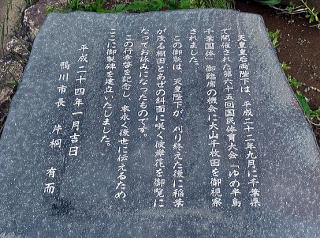 天皇皇后両陛下は、平成二十二年九月に千葉県
で開催された第六十五回国民体育大会「ゆめ半島
千葉国体」御臨席の機会に大山千枚田を御視察
されました。
この御歌は、天皇陛下が、刈り終えた後に稲葉
が茂る棚田とあぜの斜面に咲く彼岸花を御覧に
なってお詠みになったものです。
この行幸啓を記念し、末永く後世に伝えるため
ここに御製碑を建立いたしました。
平成二十四年一月吉日
鴨川市長 片桐 有而